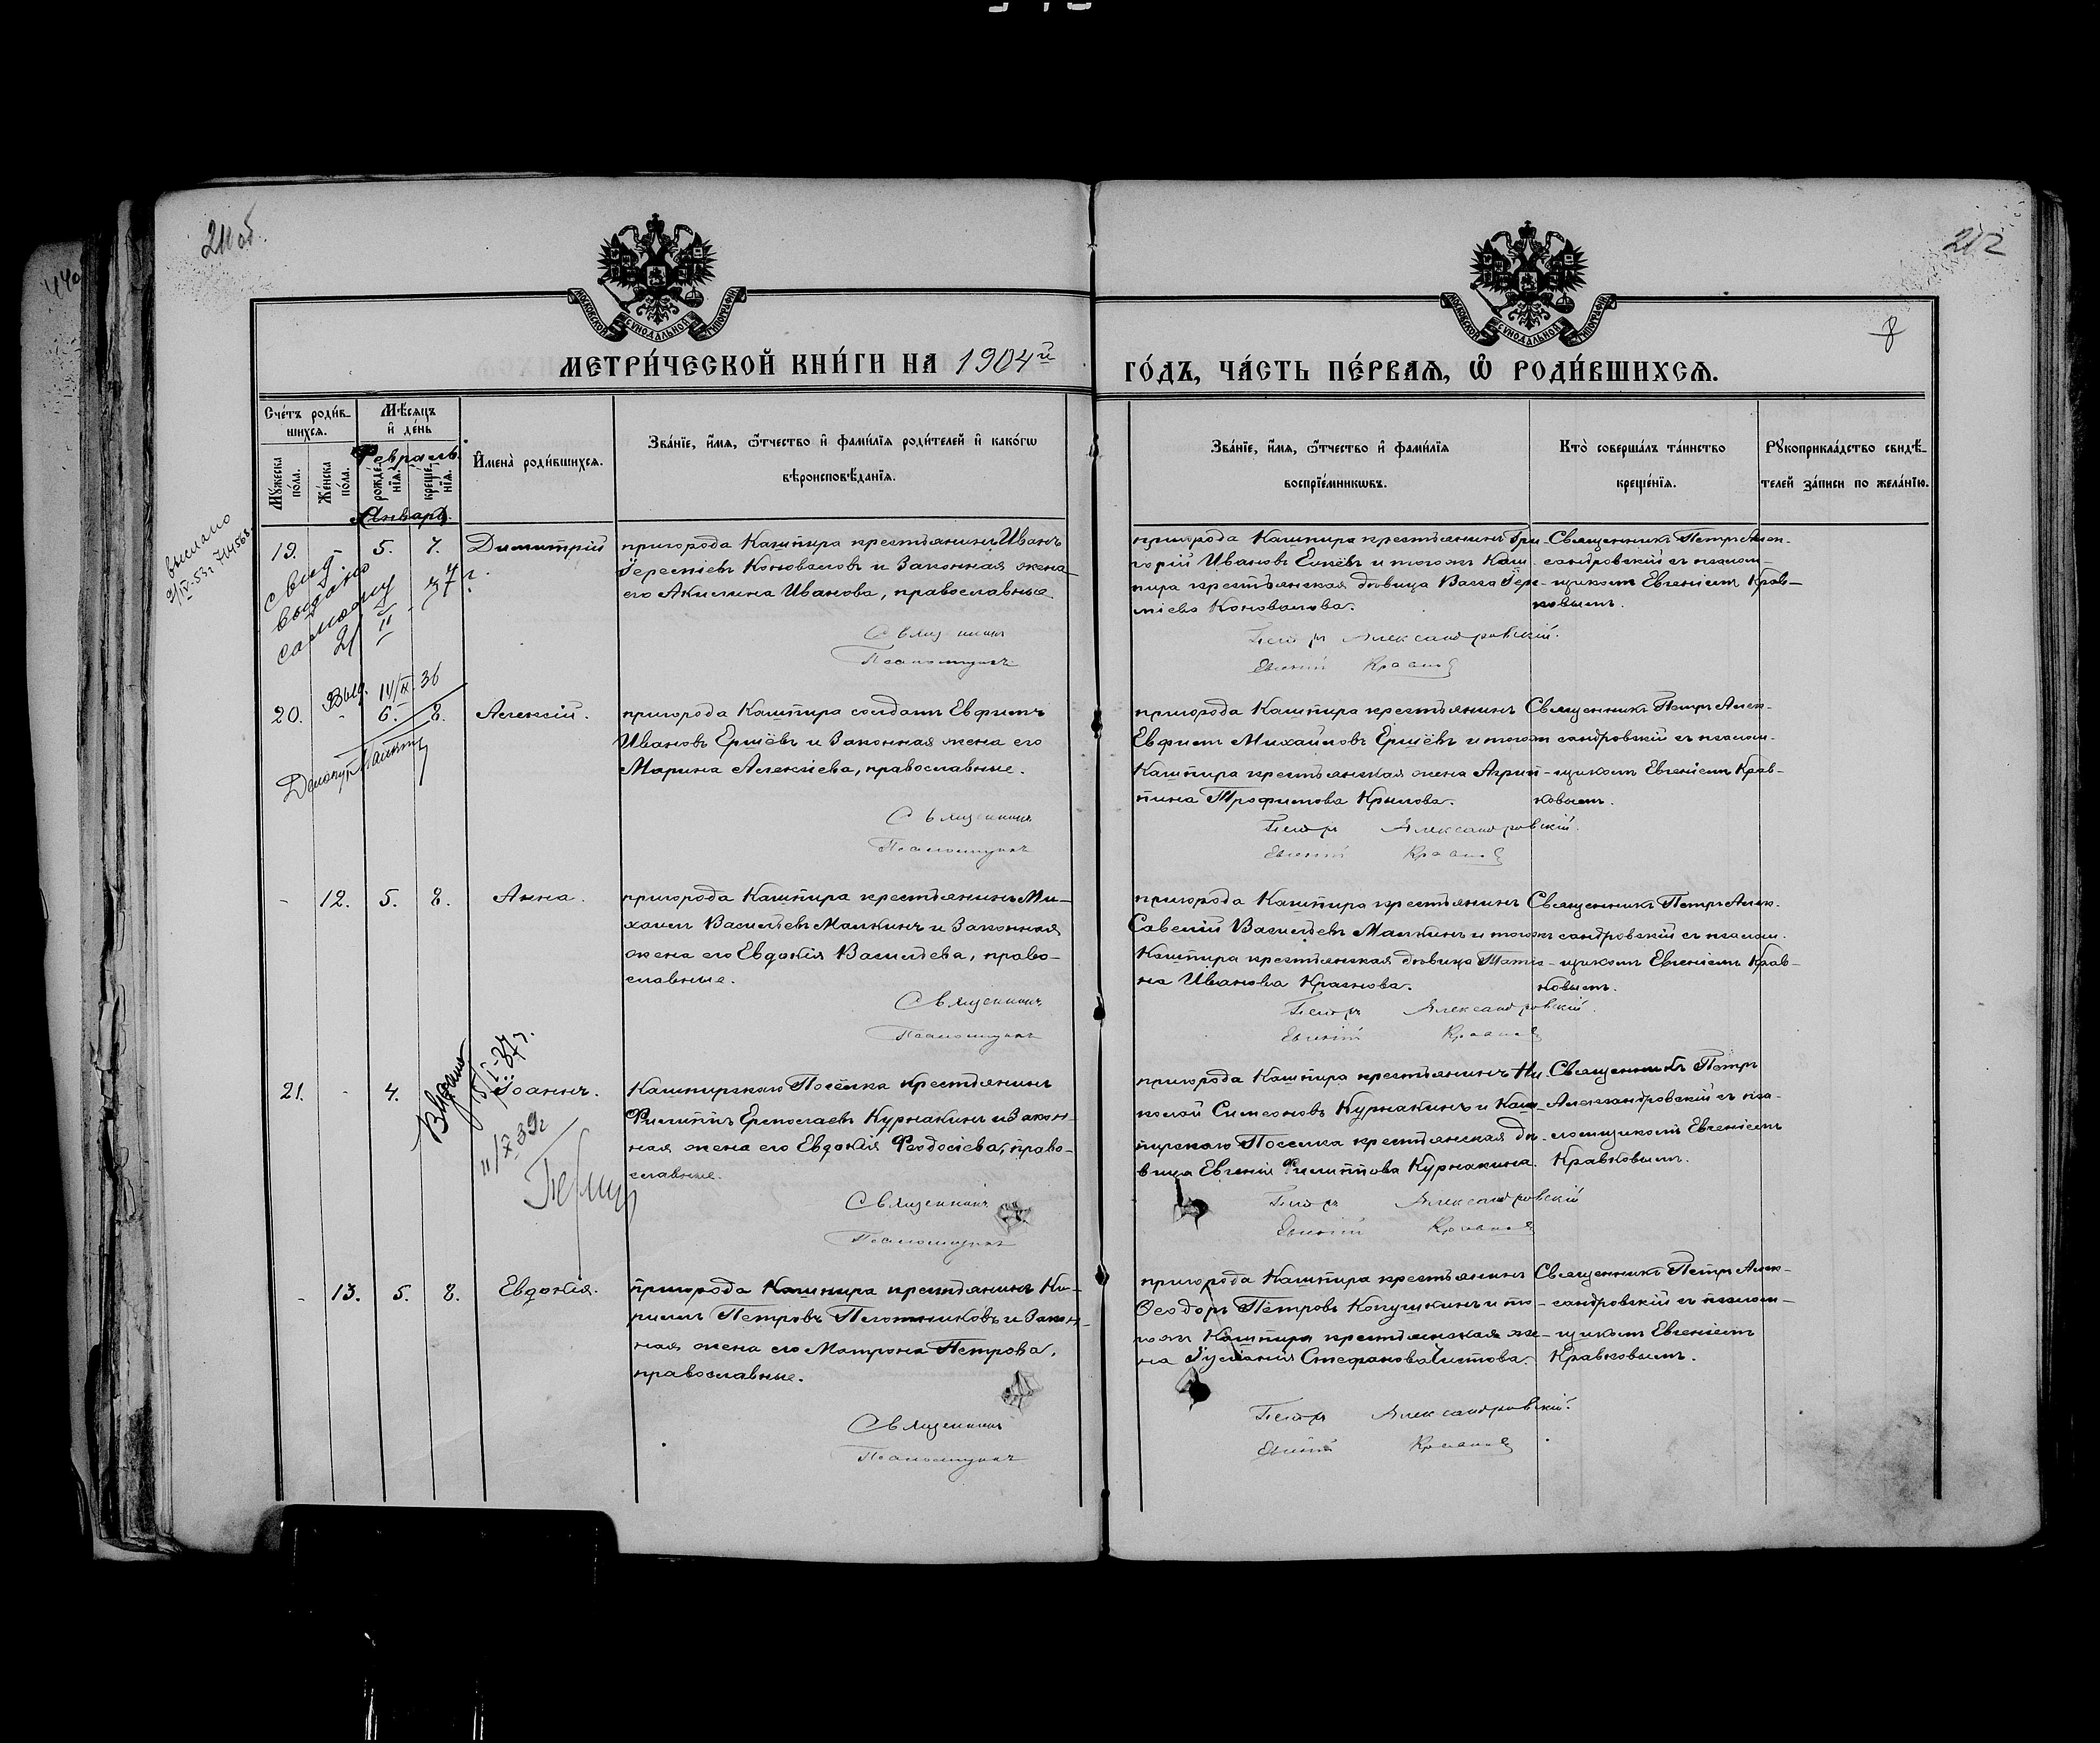 211 об.
212
8
МОСКОВСКОЙ СѴНОДАЛЬНОЙ ТИПОГРАФІИ
МОСКОВСКОЙ СѴНОДАЛЬНОЙ ТИПОГРАФІИ
МЕТРИ́ЧЕСКОЙ КНИ́ГИ НА 1904й
ГО́ДЪ, ЧА́СТЬ ПЕ́РВАѦ, Ѡ҆ РОДИ́ВШИХСѦ.
Сче́тъ роди́в-
шихсѧ.
Мꙋ́жеска по́ла.
Же́нска по́ла.
Мѣ́сѧцъ и҆ де́нь
Февраль.
рожде́-нїѧ.
креще́-нїѧ.
Январь.
И҆мена̀ роди́вшихсѧ.
Зва́нїе, и҆́мѧ, ѻ҆́тчество и҆ фами́лїѧ роди́телей и҆ како́гѡ
вѣроисповѣ́данїѧ.
Зва́нїе, и҆́мѧ, ѻ҆́тчество и҆ фами́лїѧ
воспрїе́мникѡвъ.
Кто̀ соверша́лъ та́инство
креще́нїѧ.
Рꙋкоприкла́дство свидѣ́-
телей за́писи по жела́нїю.
выслано
19. - 5. 7. Димитрій
свид.
выдано
самому
пригорода Кашпира крестьянинъ Иванъ
Терентіевъ Коноваловъ и законная жена
его Акилина Иванова, православные.
Священникъ
Псаломщикъ
пригорода Кашпира крестьянинъ Гри-
горій Ивановъ и тогожъ Каш-
пира крестьянская дѣвица Васса Терен-
тіева Коновалова.
Петръ Александровскій.
Евгеній Кравковъ
Священникъ Петръ Алек-
сандровскій съ псалом-
щикомъ Евгеніемъ Крав-
ковымъ.
Выд. 14/X 36
20. - 6. 8. Алексій.
пригорода Кашпира солдатъ Евфимъ
Ивановъ Ершёвъ и законная жена его
Марина Алексіева, православные.
Священникъ
Псаломщикъ
пригорода Кашпира крестьянинъ
Евфимъ Михайловъ Ершёвъ и тогожъ
Кашпира крестьянская жена Агрип-
пина Трофимова Крылова.
Петръ Александровскій.
Евгеній Кравковъ
Священникъ Петръ Алек-
сандровскій съ псалом-
щикомъ Евгеніемъ Крав-
ковымъ.
- 12. 5. 8. Анна.
пригорода Кашпира крестьянинъ Ми-
хаилъ Васильевъ Малкинъ и законная
жена его Евдокія Васильева, право-
славные.
Священникъ
Псаломщикъ
пригорода Кашпира крестьянинъ
Савелій Васильевъ Малкинъ и тогожъ
Кашпира крестьянская дѣвица Татіа-
на Иванова Краснова.
Петръ Александровскій.
Евгеній Кравковъ
Священникъ Петръ Алек-
сандровскій съ псалом-
щикомъ Евгеніемъ Крав-
ковымъ.
21. - 4. Іоаннъ.
Выдано
Кашпирскаго Посёлка крестьянинъ
Филиппъ Ермолаевъ Курнакинъ и закон-
ная жена его Евдокія Феодосіева, право-
славные.
Священникъ
Псаломщикъ
пригорода Кашпира крестьянинъ Ни-
колай Симеоновъ Курнакинъ и Каш-
пирскаго Поселка крестьянская дѣ-
вица Евгенія Филиппова Курнакина.
Петръ Александровскій
Евгеній Кравковъ
Священникъ Петръ
Александровскій съ пса-
ломщикомъ Евгеніемъ
Кравковымъ.
- 13. 5. 8. Евдокія.
пригорода Кашпира крестьянинъ Ки-
риллъ Петровъ Плотниковъ и закон-
ная жена его Матрона Петрова,
православные.
Священникъ
Псаломщикъ
пригорода Кашпира крестьянинъ
Ѳеодоръ Петровъ Капушкинъ и то-
гожъ Кашпира крестьянская же-
на Іуліанія Стефанова Чистова.
Петръ Александровскій.
Евгеній Кравковъ
Священникъ Петръ Алек-
сандровскій съ псалом-
щикомъ Евгеніемъ
Кравковымъ.